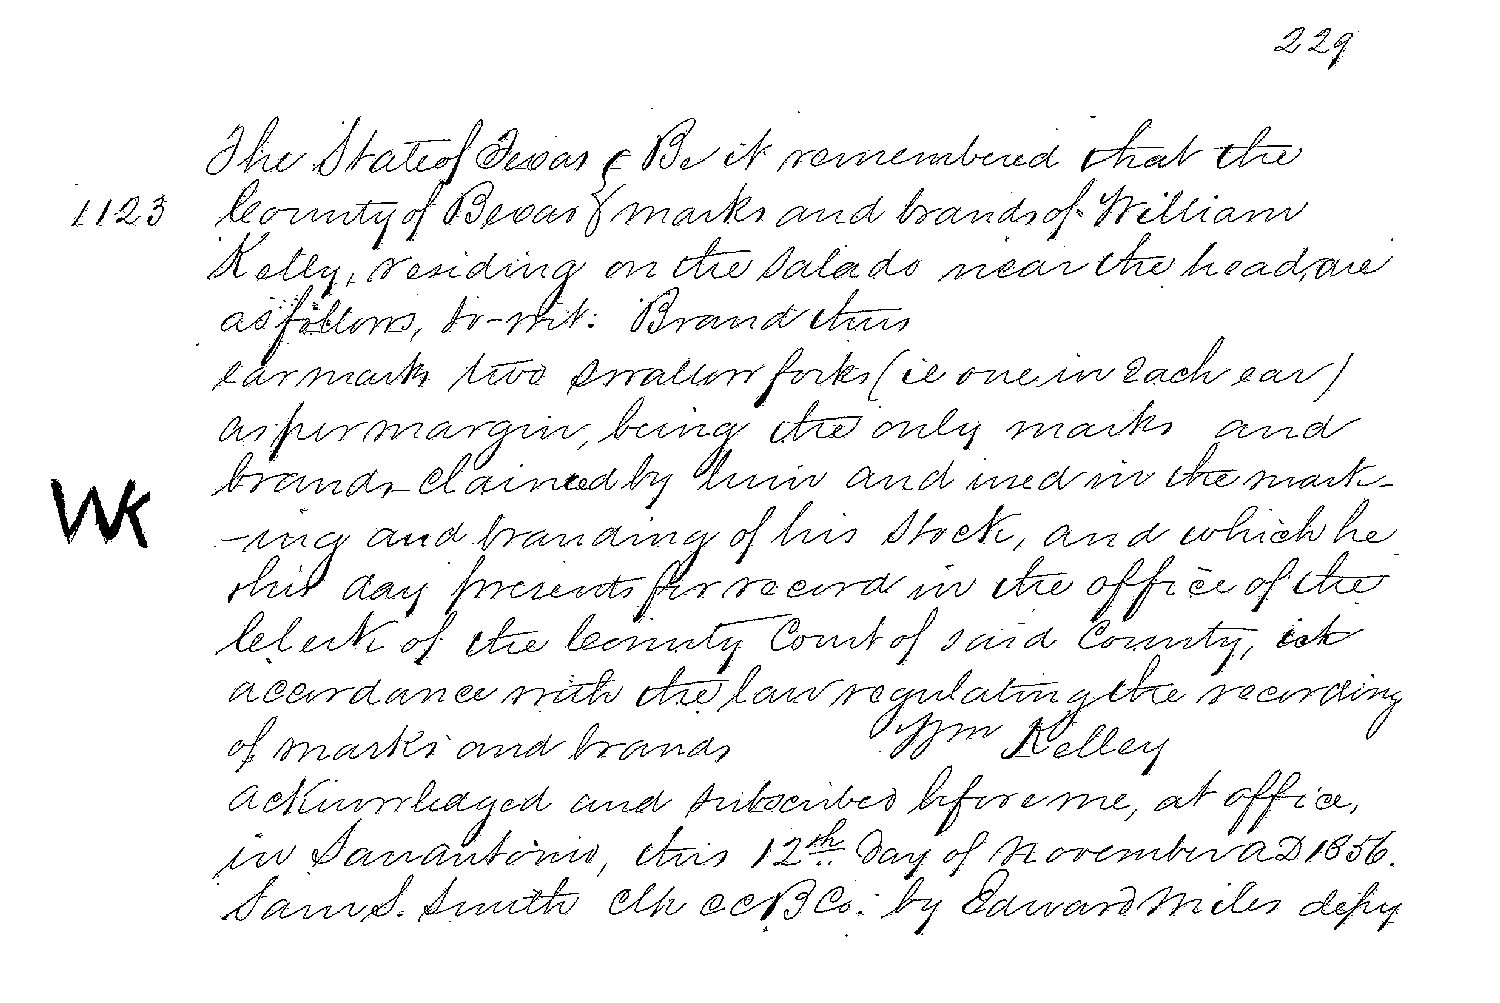 229
The State of Texas } Be it remembered that the
1123 County of Bexar } marks and brands of William
Kelly, residing on the Salado near the head, are
as follows, to-wit: Brand thus
ear marks two swallow forks (ie one in each ear)
as per margin, being the only marks and
brands claimed by him and used in the mark-
WK
-ing and branding of his stock, and which he
this day presents for record in the office of the
Clerk of the County Court of said County, in
accordance with the law regulating the recording
of marks and brands Wm Kelley
acknowledged and subscribed before me, at office,
in San antonio, this 12th day of November AD 1856.
Sam S. Smith Clk CCB Co. by Edward Miles depy